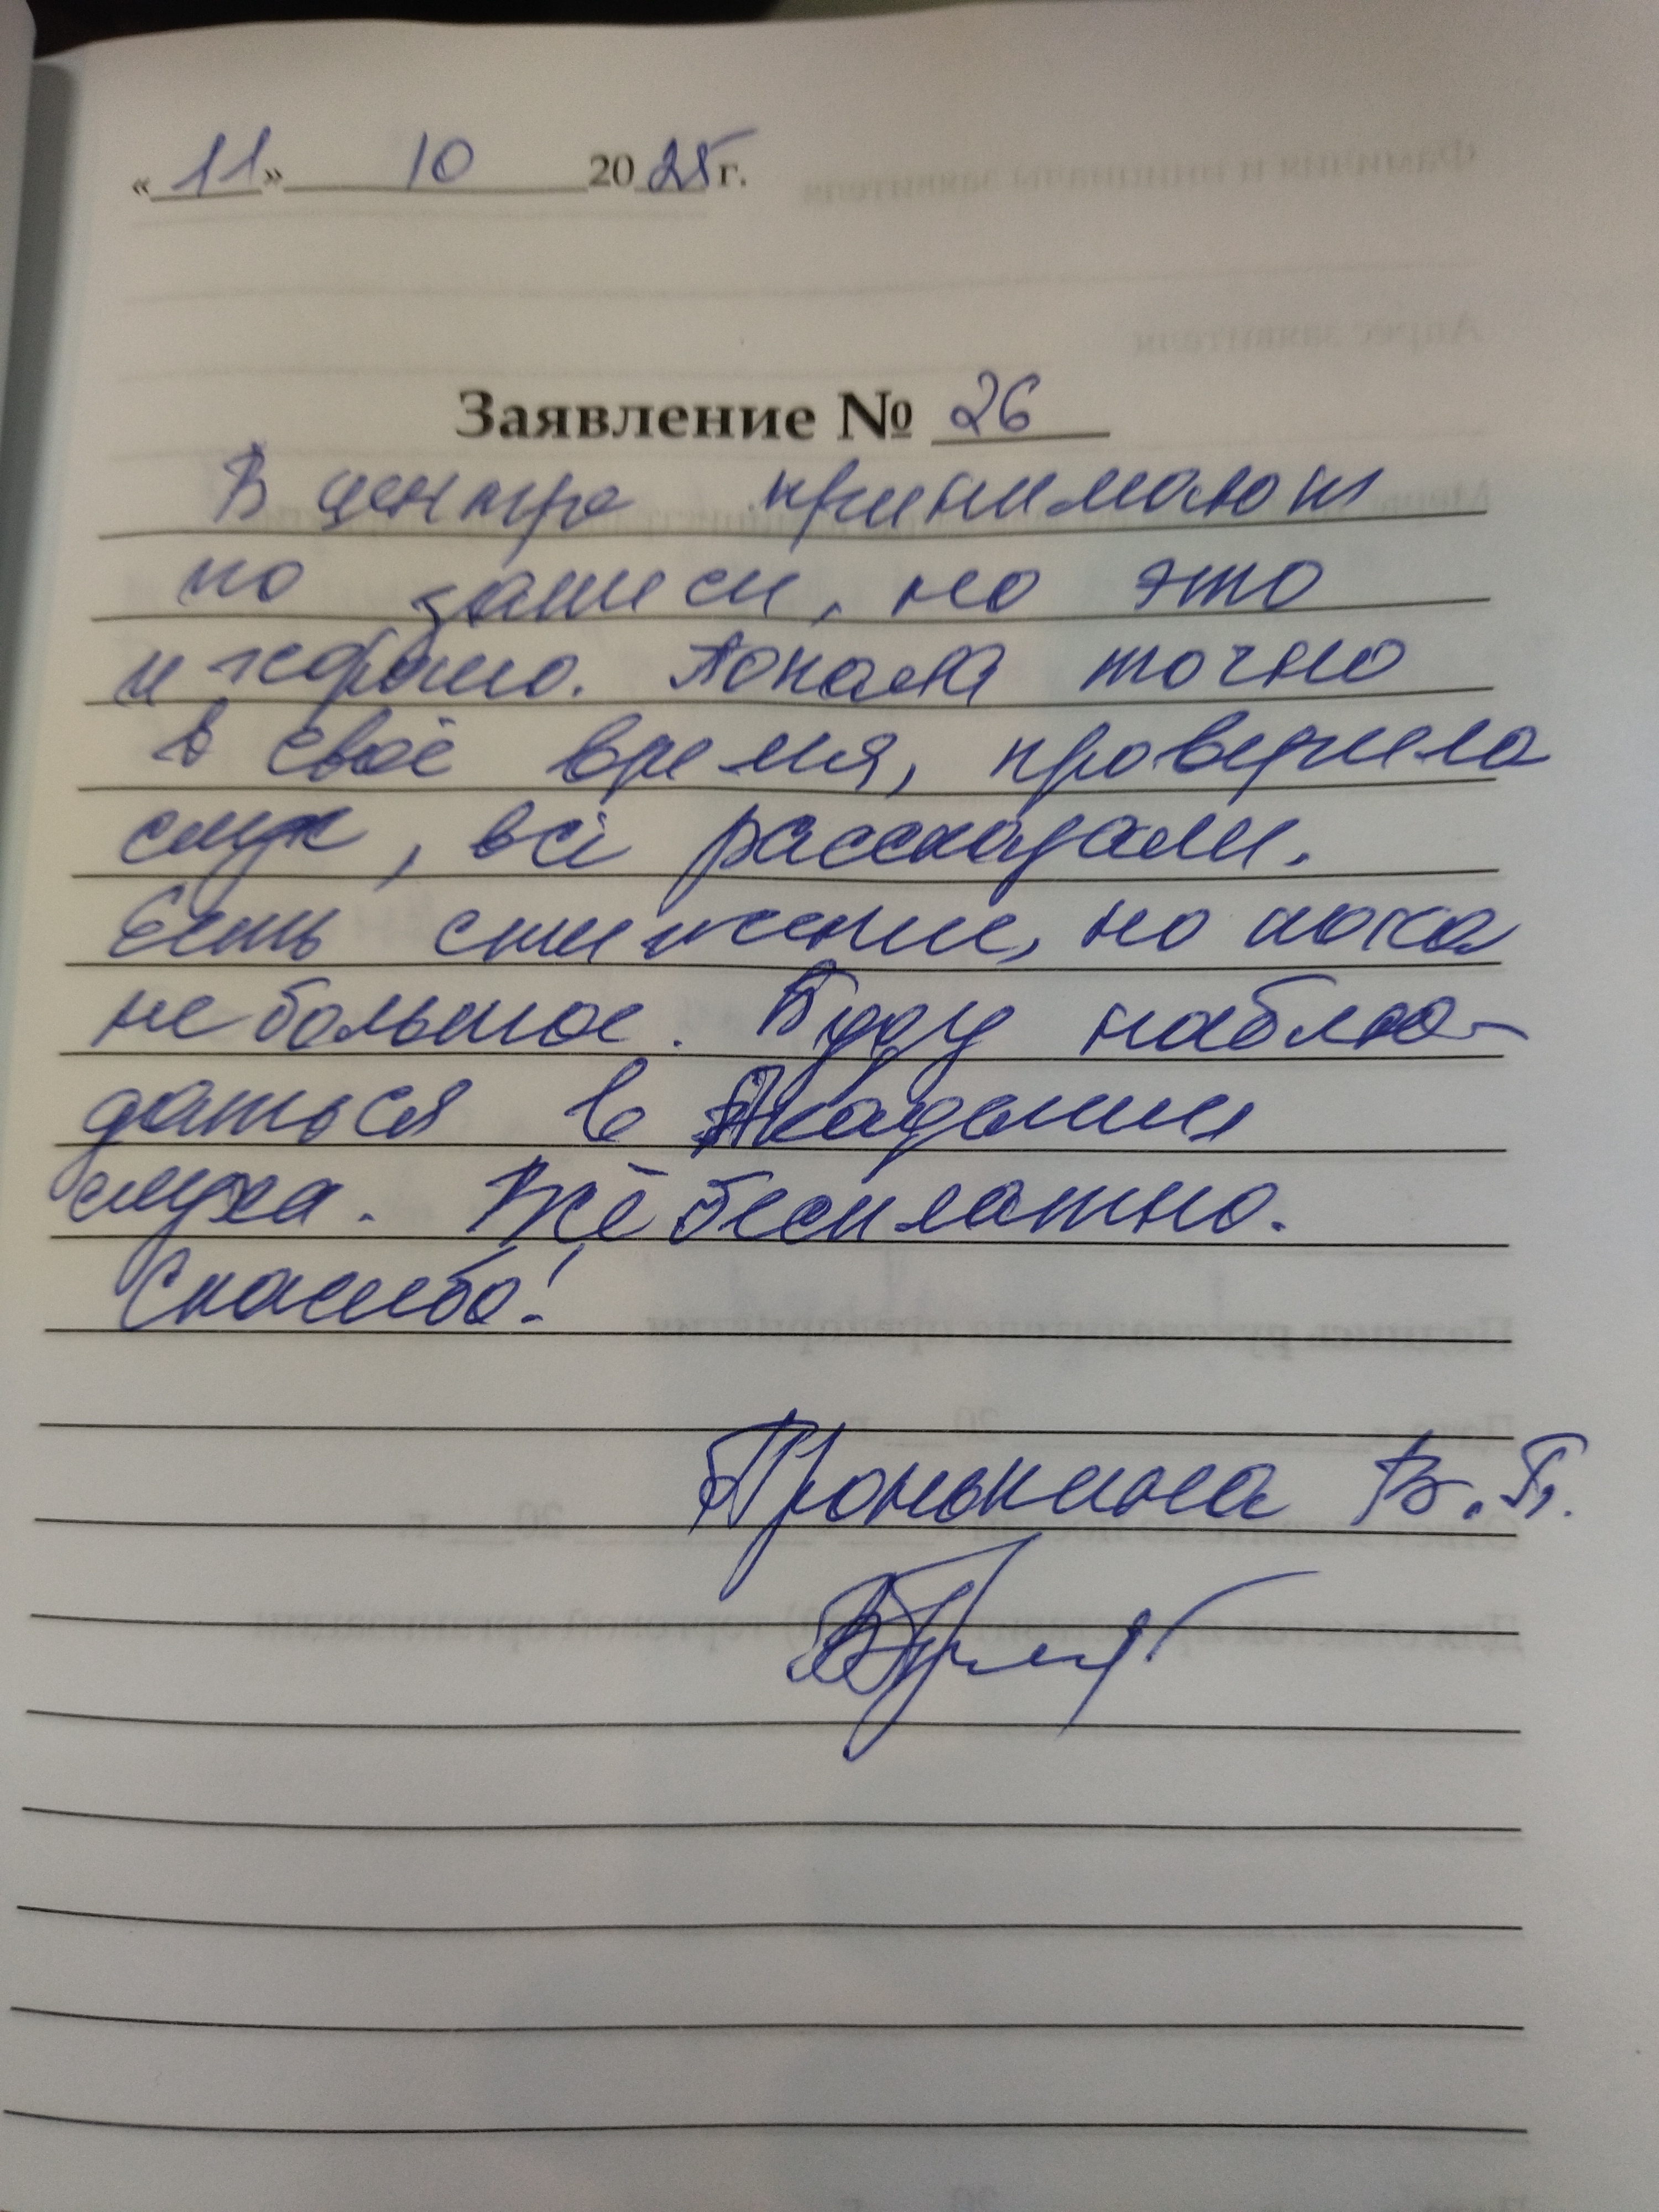 «11» 10 2025 г.
Заявление № 26
В центре принимают
по записи, но это
и хорошо. Попала точно
в своё время, проверила
слух, всё рассказали.
Есть снижение, но пока
не большое. Буду наблю-
даться в Академии
слуха. Всё бесплатно.
Спасибо!
Пронькина В. П.